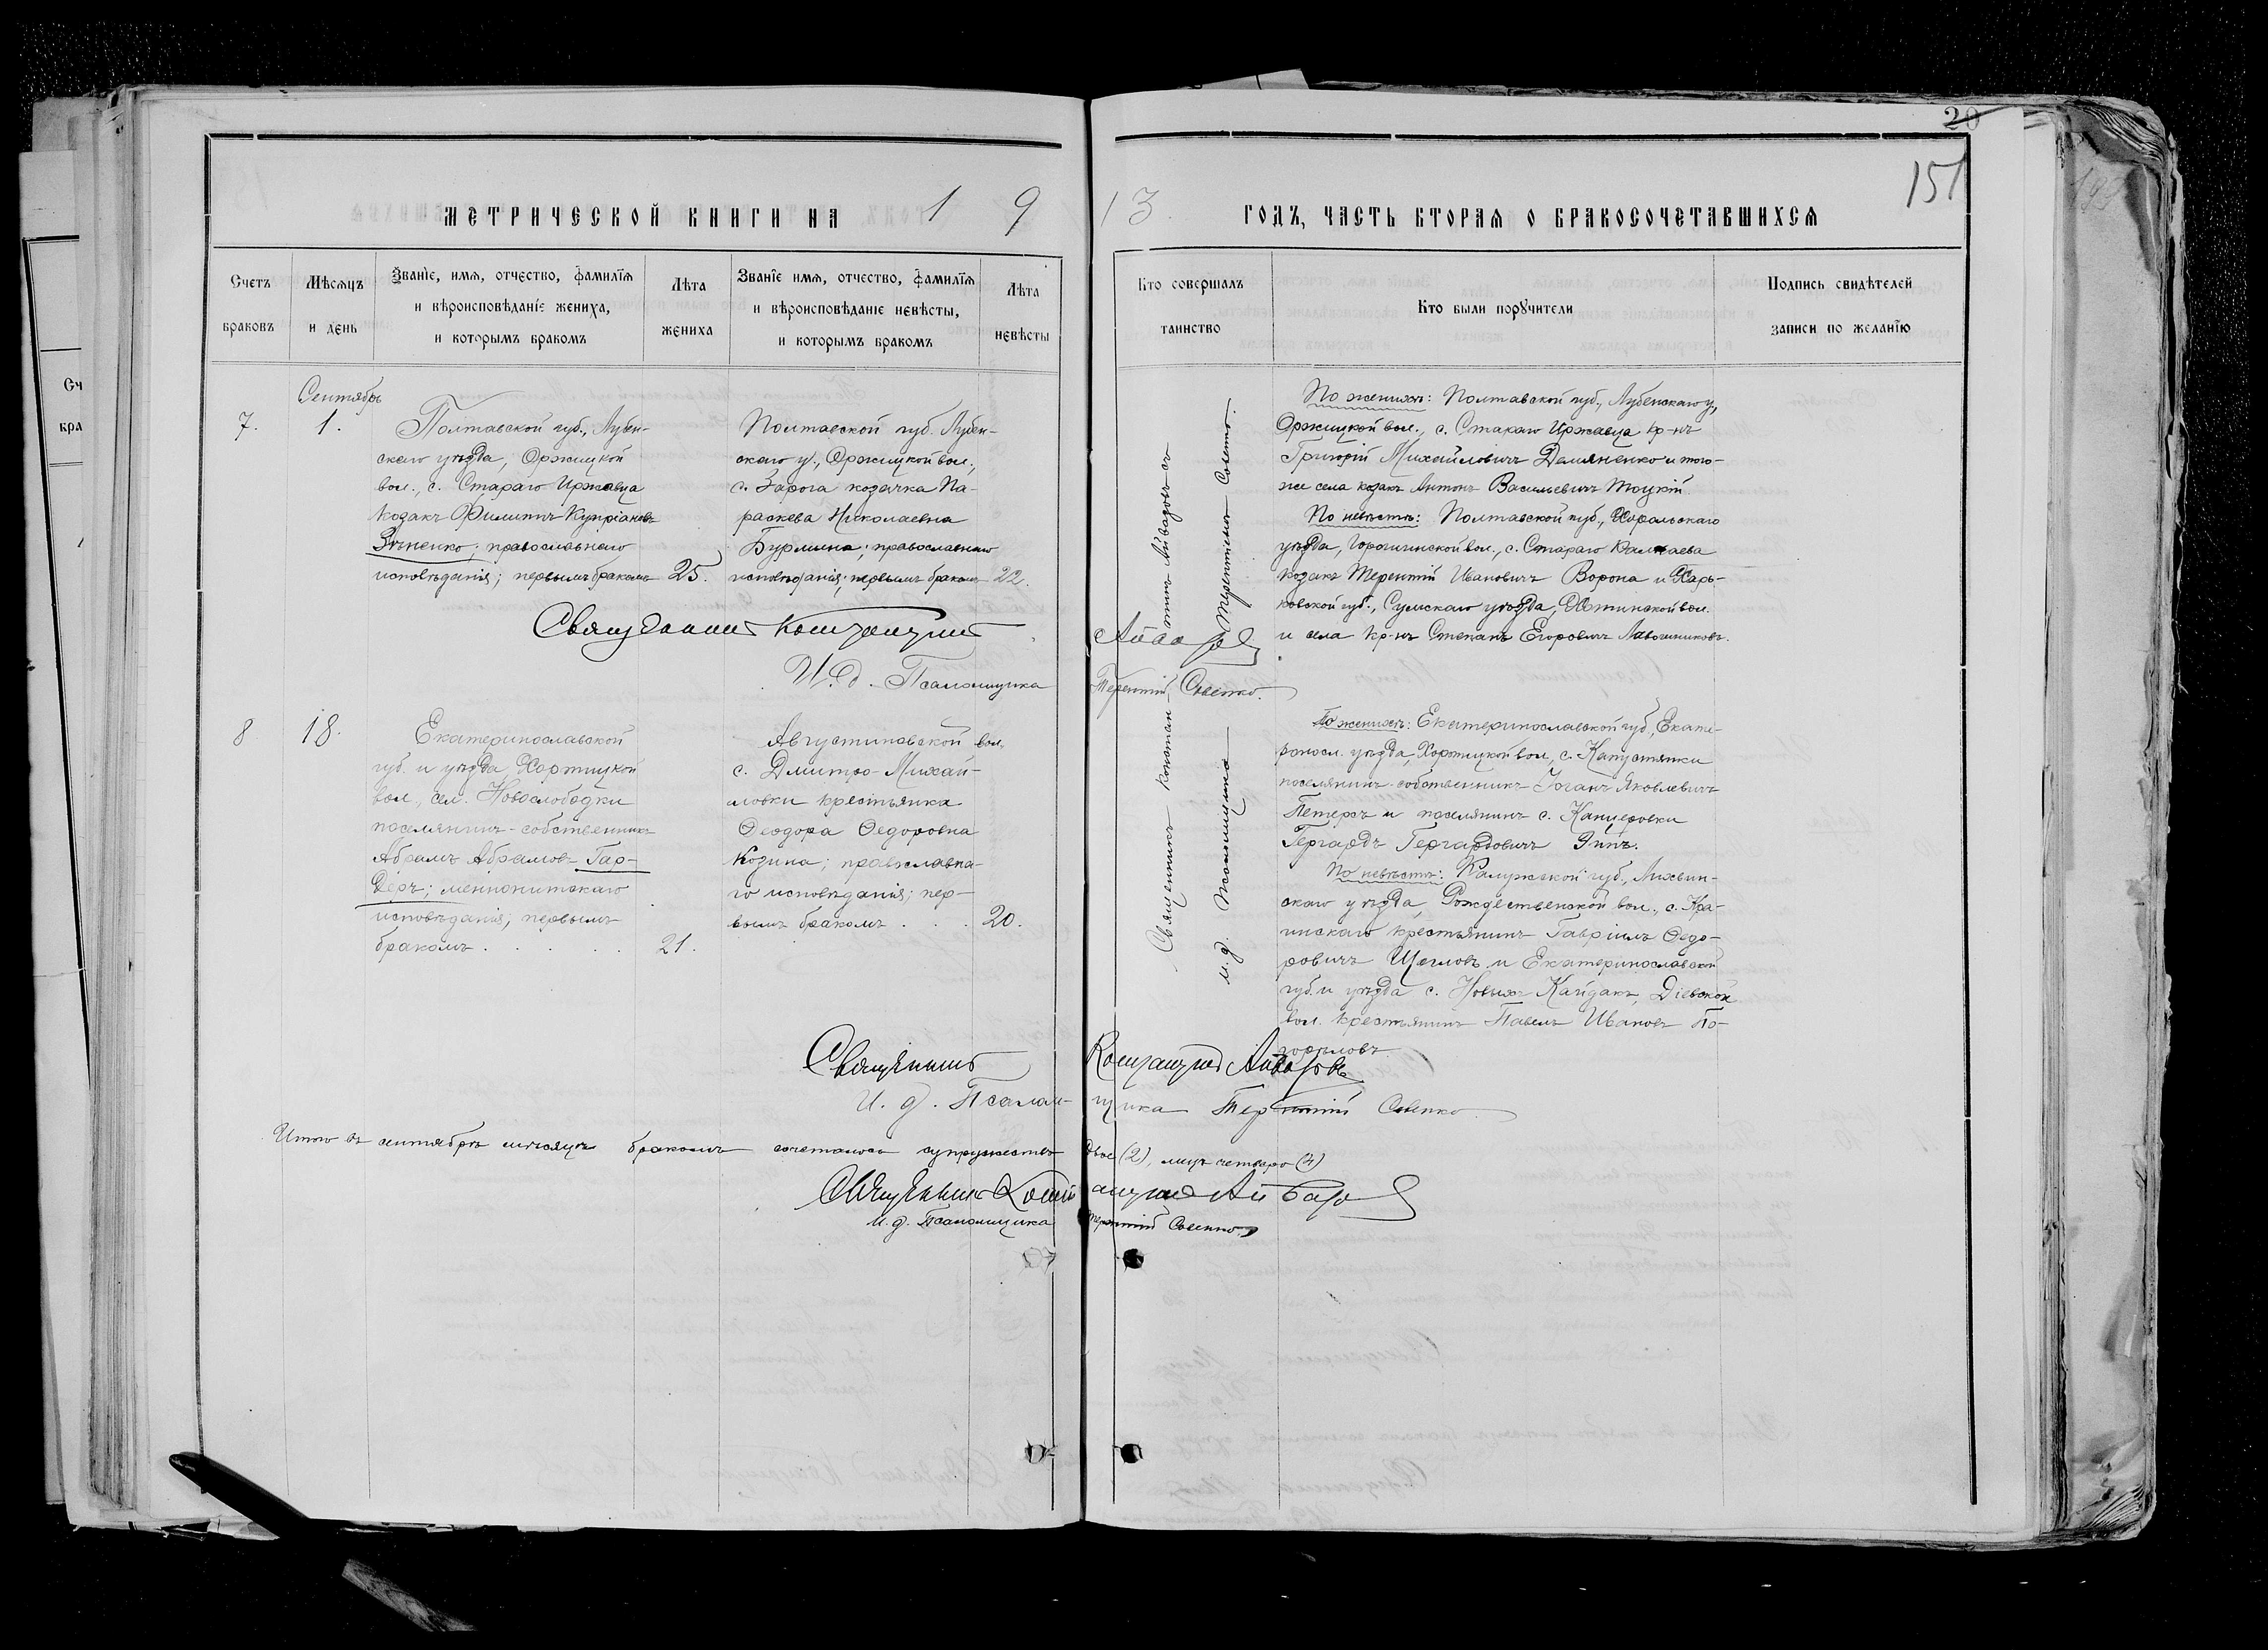 20
151
МЕТРИЧЕСКОЙ КНИГИ НА 19
13 ГОДЪ, ЧАСТЬ ВТОРАЯ О БРАКОСОЧЕТАВШИХСЯ
Счетъ
браковъ
Мѣсяцъ
и день
Званіе, имя, отчество, фамилія
и вѣроисповѣданіе жениха,
и которымъ бракомъ
Лѣта
жениха
Званіе имя, отчество, фамилія
и вѣроисповѣданіе невѣсты,
и которымъ бракомъ
Лѣта
невѣсты
Кто совершалъ
таинство
Кто были поручители
Подпись свидѣтелей
записи по желанію
Сентябрь
7.
1.
Полтавской губ., Лубен-
скаго уѣзда, Оржицкой
вол., с. Стараго Иржавца
козакъ Филиппъ Купріановъ
Зѣненко; православнаго
исповѣданія; первымъ бракомъ
25.
Полтавской губ. Лубен-
скаго у., Оржицкой вол.,
с. Зарога козачка Па-
раскева Николаевна
Бурлина; православнаго
исповѣданія; первымъ бракомъ
22.
Священникъ Константинъ
Айвазовъ
И. д. Псаломщика
Терентій Совенко.
Священникъ Константинъ Айвазовъ
и. д. Псаломщика Терентій Совенко.
По женихѣ: Полтавской губ., Лубенскаго у.,
Оржицкой вол., с. Стараго Иржавца кр-нъ
Григорій Михайловичъ Демяненко и того-
же села козакъ Антонъ Васильевичъ Тоцкій.
По невѣстѣ: Полтавской губ., Хорольскаго
уѣзда, Горошинской вол., с. Стараго
козакъ Терентій Ивановичъ Ворона и Харь-
ковской губ., Сумскаго уѣзда, Хотинской вол.
и села кр-нъ Степанъ Егоровичъ
8
18.
Екатеринославской
губ. и уѣзда Хортицкой
вол., сел. Новослободки
поселянинъ-собственникъ
Абрамъ Абрамовъ Гар-
деръ; меннонитскаго
исповѣданія; первымъ
бракомъ . . . . .
21.
Августиновской вол.
с. Дмитро-Михай-
ловки крестьянка
Ѳеодора Ѳедоровна
Козина; православна-
го исповѣданія; пер-
вымъ бракомъ . . .
20.
По женихѣ: Екатеринославской губ., Екате-
риносл. уѣзда, Хортицкой вол., с. Капустянки
поселянинъ-собственникъ Іоганъ Яковлевичъ
Петерсъ и поселянинъ с. Канцеровки
Гергардъ Гергардовичъ Эппъ.
По невѣстѣ: Калужской губ., Лихвин-
скаго уѣзда, Рождественской вол., с. Кра-
инскаго крестьянинъ Гавріилъ Ѳедо-
ровичъ Щегловъ и Екатеринославской
губ. и уѣзда с. Новыхъ Кайдакъ, Діевской
вол. крестьянинъ Павелъ Ивановъ По-
горѣловъ.
Священникъ Константинъ Айвазовъ
И. д. Псалом- щика Терентій Совенко.
Итого въ сентябрѣ мѣсяцѣ бракомъ сочеталось супружествъ двое (2), лицъ четверо (4)
Священникъ Константинъ Айвазовъ
И. д. Псаломщика Терентій Совенко